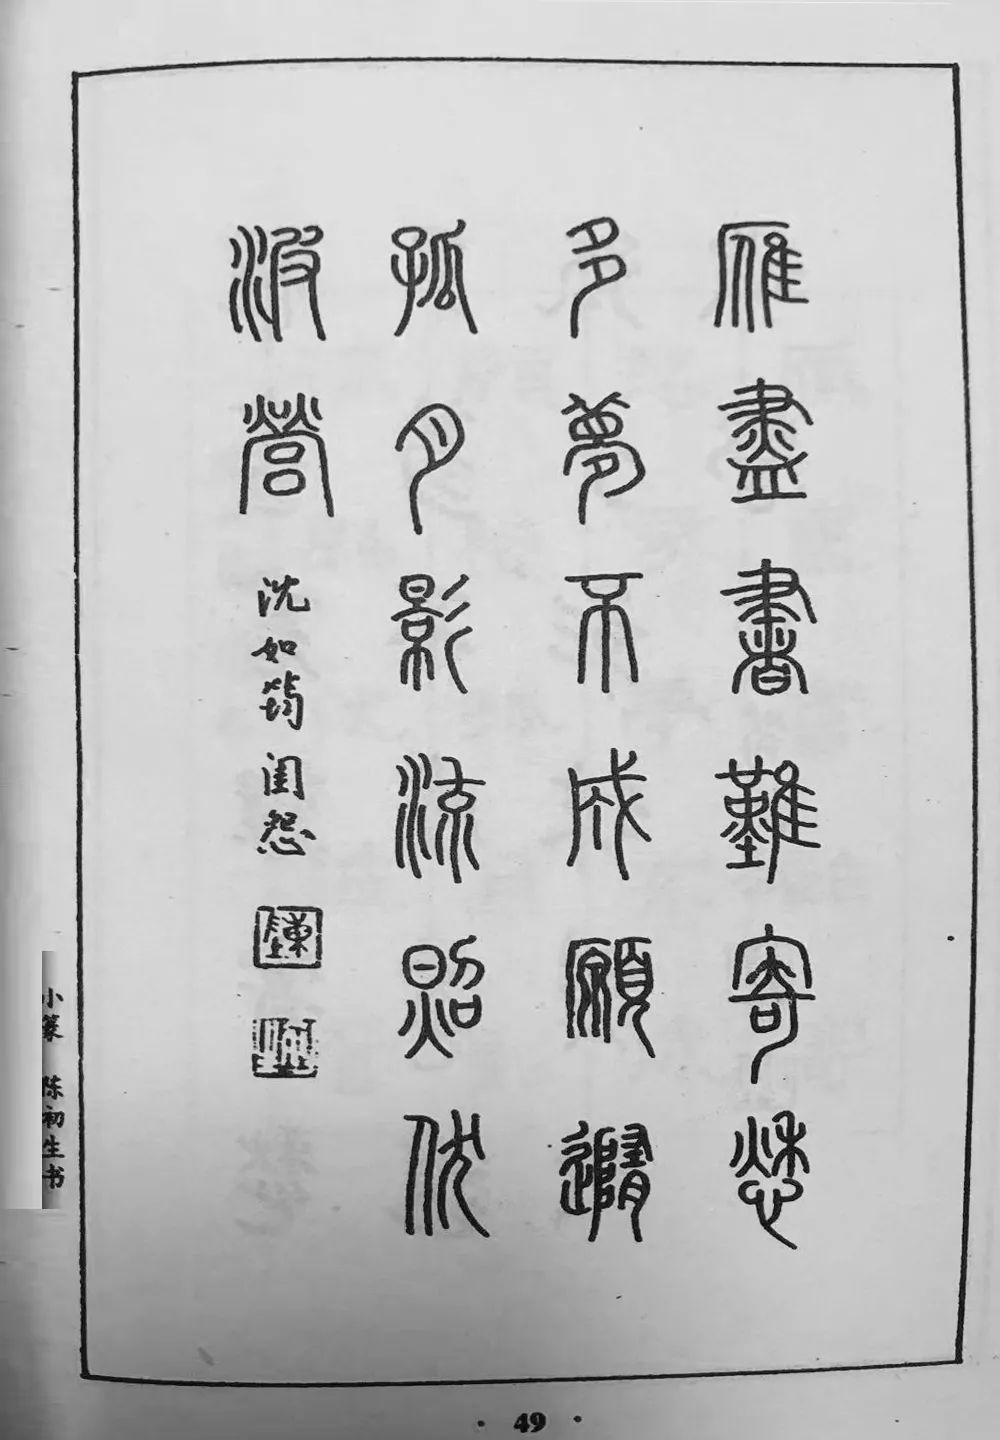 雁盡書難寄愁
多夢不成願隨
孤月影流照伏
波營 沈如筠闺怨
陳
小篆 陈初生书
· 49 ·